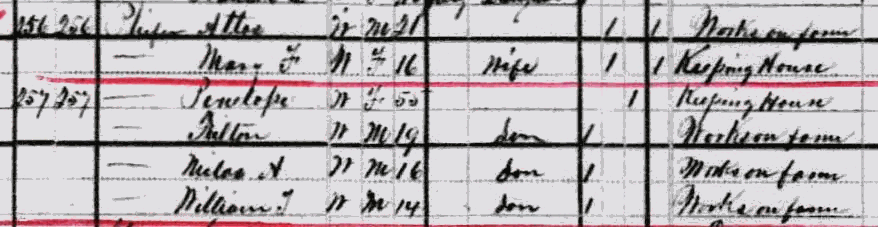 256 256 Phifer Atlas W M 21 1 1 Works on farm
— Mary F W F 16 Wife 1 1 Keeping House
257 257 — Penelope W F 55 1 Keeping House
— Fulton W M 19 Son 1 Works on farm
— Milas A W M 16 Son 1 Works on farm
— William T W M 14 Son 1 Works on farm